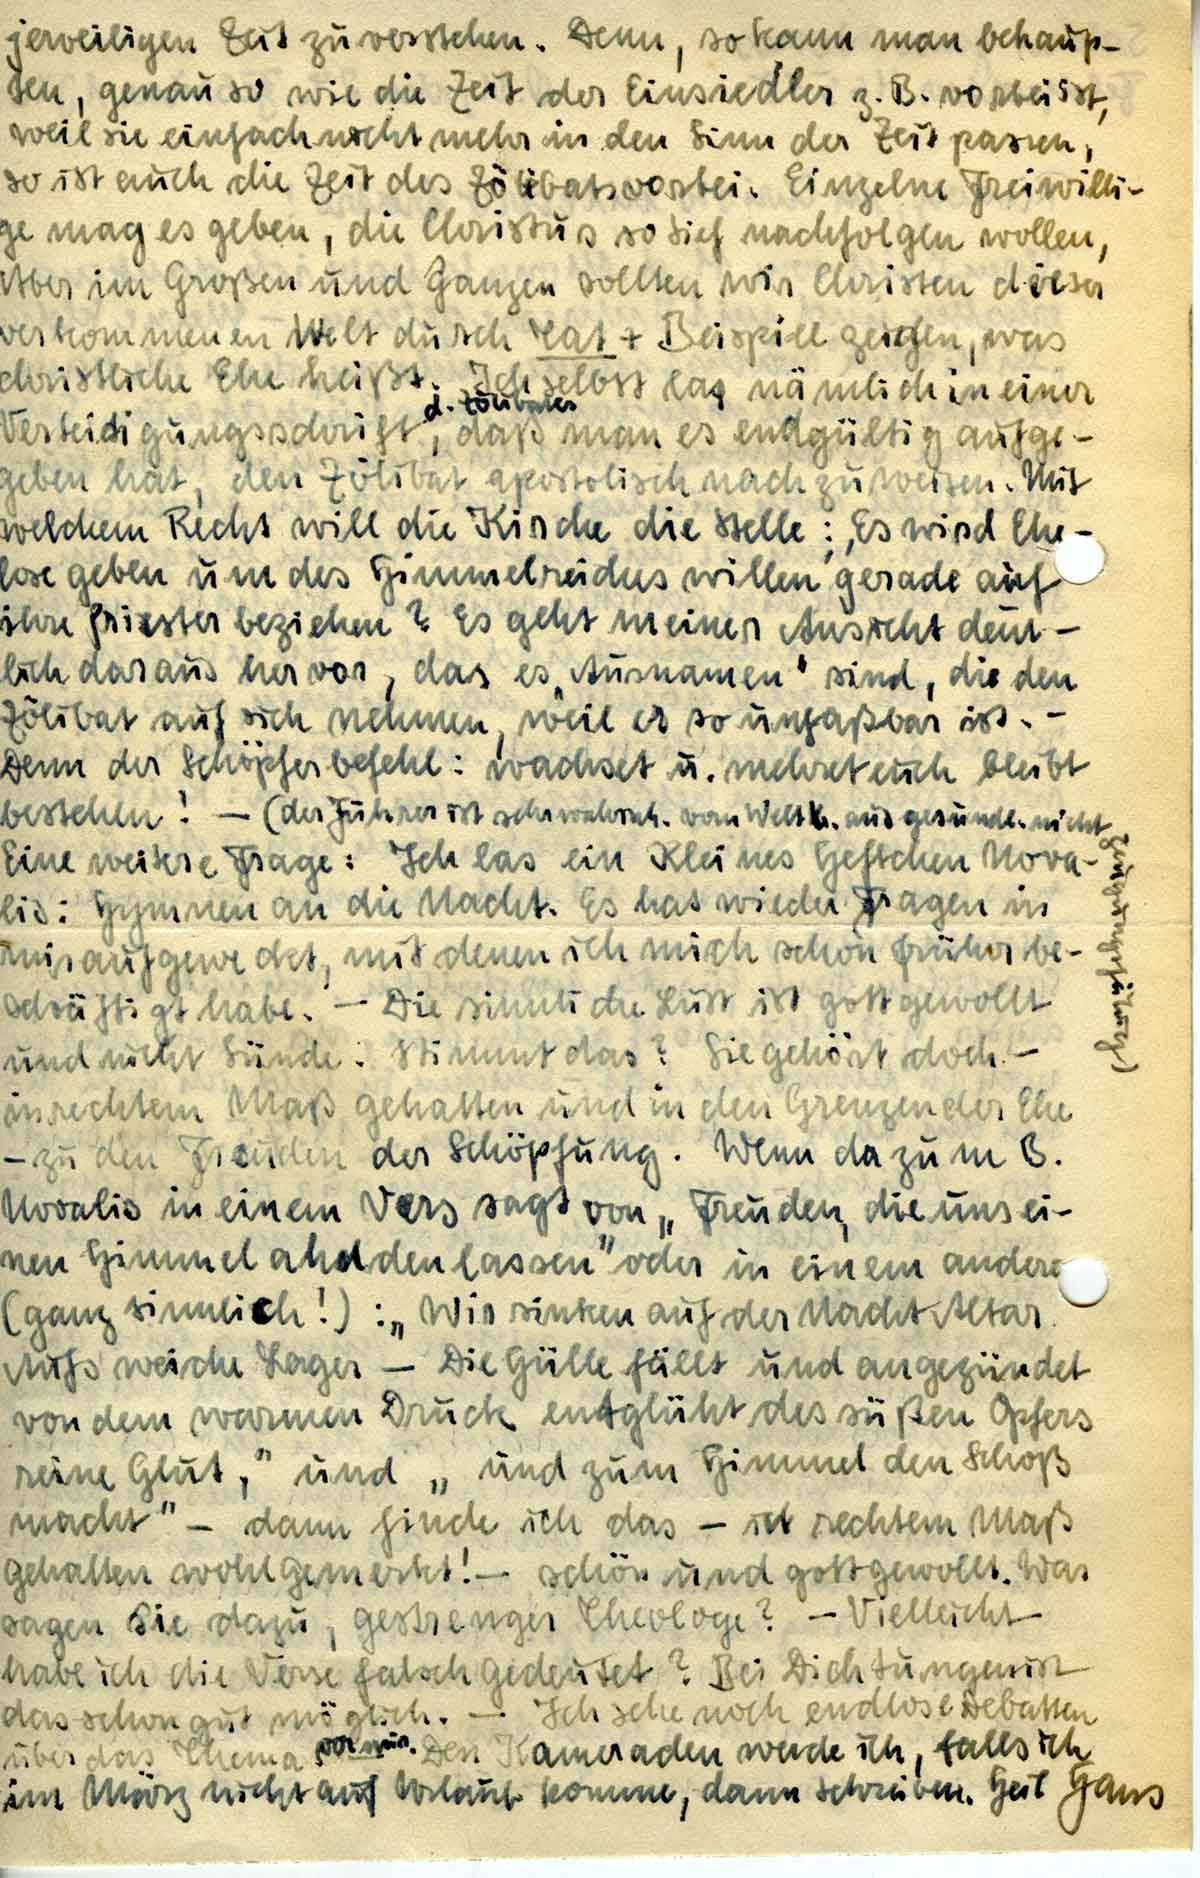 jerweiligen Zeit zu verstehen. Denn, so kann man behaup-
ten, genau so wie die Zeit der Einsiedler z. B. vorbei ist,
weil sie einfach nicht mehr in den Sinn der Zeit passen,
so ist auch die Zeit des Zölibats vorbei. Einzelne Freiwilli-
ge mag es geben, die Christus so tief nachfolgen wollen,
Aber im Großen und Ganzen sollten wir Christen dieser
verkommenen Welt durch Tat + Beispiel zeigen, was
christliche Ehe heißt. Ich selbst las nämlich in einer
d. Zölibates
Verteidigungsschrift, daß man es endgültig aufge-
geben hat, den Zölibat apostolisch nachzuweisen. Mit
welchem Recht will die Kirche die Stelle: „Es wird Ehe-
lose geben um des Himmelreiches willen" gerade auf
ihre Priester beziehen? Es geht meiner Ansicht deut-
lich daraus hervor, das es „Ausnamen" sind, die den
Zölibat auf sich nehmen, weil er so unfaßbar ist. -
Denn der Schöpferbefehl: wachset u. mehret euch bleibt
bestehen! — (der Führer ist sehr wahrsch. vom Weltk. aus gesundh. nicht
zeugungsfähig)
Eine weitere Frage: Ich las ein Kleines Heftchen Nova-
lis: Hymnen an die Nacht. Es hat wieder Fragen in
mir aufgewecket, mit denen ich mich schon früher be-
schäftigt habe. — Die sinnliche Lust ist gottgewollt
und nicht Sünde. Stimmt das? Sie gehört doch -
in rechtem Maß gehalten und in den Grenzen der Ehe
- zu den Freuden der Schöpfung. Wenn da zum B.
Novalis in einem Vers sagt von „Freuden, die uns ei-
nen Himmel ahdden lassen" oder in einem andern
(ganz sinnlich!): „Wir sinken auf der Nacht Altar
Aufs weiche Lager — Die Hülle fällt und angezündet
von dem warmen Druck entglüht des süßen Opfers
reine Glut," und „und zum Himmel den Schoß
macht" - dann finde ich das - in rechtem Maß
gehalten wohlgemerkt! - schön und gottgewollt. Was
sagen Sie dazu, gestrenger Theologe? - Vielleicht
habe ich die Verse falsch gedeutet? Bei Dichtungen ist
das schon gut möglich. — Ich sehe noch endlose Debatten
über das Thema vor mir. Den Kameraden werde ich, falls ich
im März nicht auf Urlaub komme, dann schreiben. Heil Hans